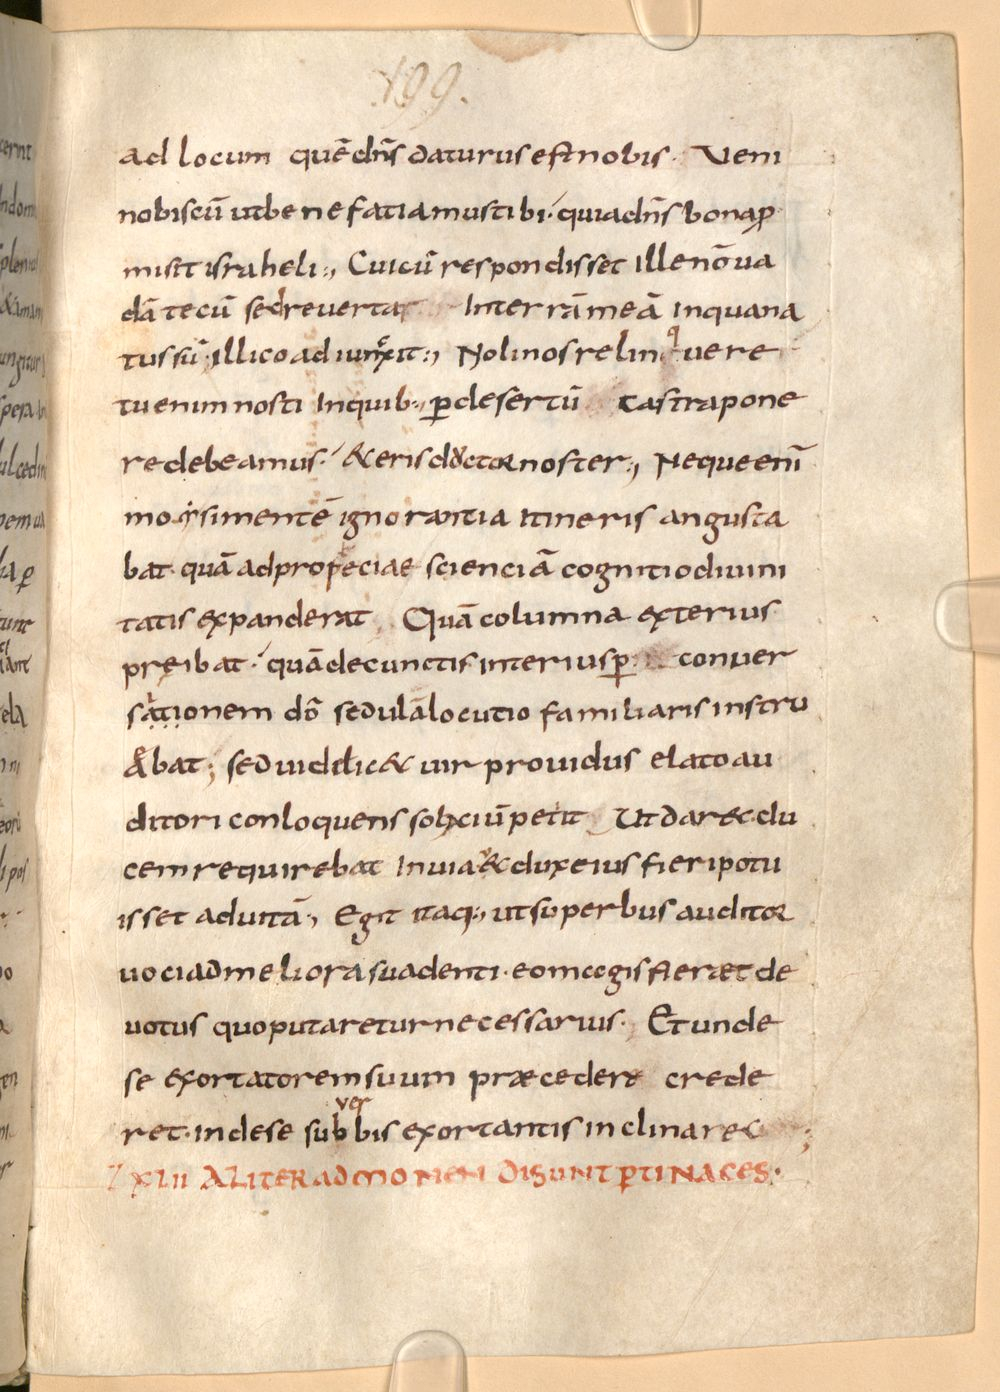 199.
ad locum quē dn̄s daturus est nobis. Veni
nobiscū ut benefatiamus tibi. quia dn̄s bona p̱
misit israheli:, Cui cū respondisset ille nō va
dā tecū sed revertar In terrā meā In qua na
tus sū. illico adiunxit:, Noli nos relinquere
tu enim nosti Inquib:, p̱ desertū castra pone
re debeamus. & eris doctor noster:, Neque enī
moysi mentē ignorantia Itineris angusta
bat. quā ad profeciae scienciā cognitio divini
tatis expanderat, Quā columna exterius
pręibat. quā de cunctis interius p̱ conver
sationem dō sedulā locutio familiaris instru
&bat; sed videlic& vir providus elato au
ditori conloquens solaciū petit Ut dar& du
cem requirebat In via & dux eius fieri potu
isset ad vitā:, Egit itaq:, ut superbus auditor
voci ad meliora suadenti. eo magis fieret de
votus quo putaretur necessarius. Et unde
se exortatorem suum præcedere crede
ret. inde se sub ver bis exortantis inclinare&
XLII ALITER ADMONENDI SUNT P̱TINACES.